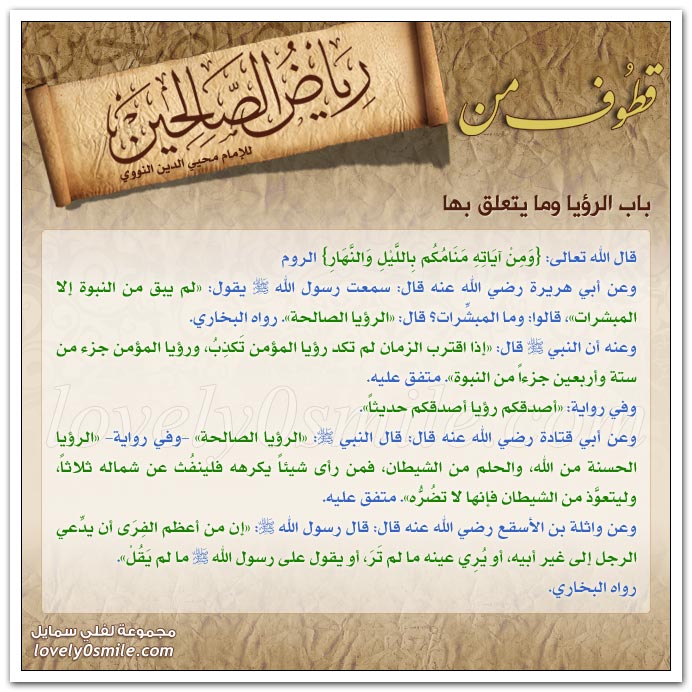 قطوف من
رياض الصالحين
للإمام محيي الدين النووي
باب الرؤيا وما يتعلق بها
قال الله تعالى: {وَمِنْ آيَاتِهِ مَنَامُكُم بِاللَّيْلِ وَالنَّهَارِ} الروم
وعن أبي هريرة رضي الله عنه قال: سمعت رسول الله ﷺ يقول: «لم يبق من النبوة إلا
المبشرات»، قالوا: وما المبشِّرات؟ قال: «الرؤيا الصالحة». رواه البخاري.
وعنه أن النبي ﷺ قال: «إذا اقترب الزمان لم تكد رؤيا المؤمن تَكذِبُ، ورؤيا المؤمن جزء من
ستة وأربعين جزءاً من النبوة». متفق عليه.
وفي رواية: «أصدقكم رؤيا أصدقكم حديثاً».
وعن أبي قتادة رضي الله عنه قال: قال النبي ﷺ: «الرؤيا الصالحة» -وفي رواية- «الرؤيا
الحسنة من الله، والحلم من الشيطان، فمن رأى شيئاً يكرهه فلينفُث عن شماله ثلاثاً،
وليتعوَّذ من الشيطان فإنها لا تضُرُّه». متفق عليه.
وعن واثلة بن الأسقع رضي الله عنه قال: قال رسول الله ﷺ: «إن من أعظم الفِرَى أن يدَّعي
الرجل إلى غير أبيه، أو يُرِي عينه ما لم تَرَ، أو يقول على رسول الله ﷺ ما لم يَقُلْ».
رواه البخاري.
lovely0smile.com
مجموعة لفلي سمايل
lovely0smile.com